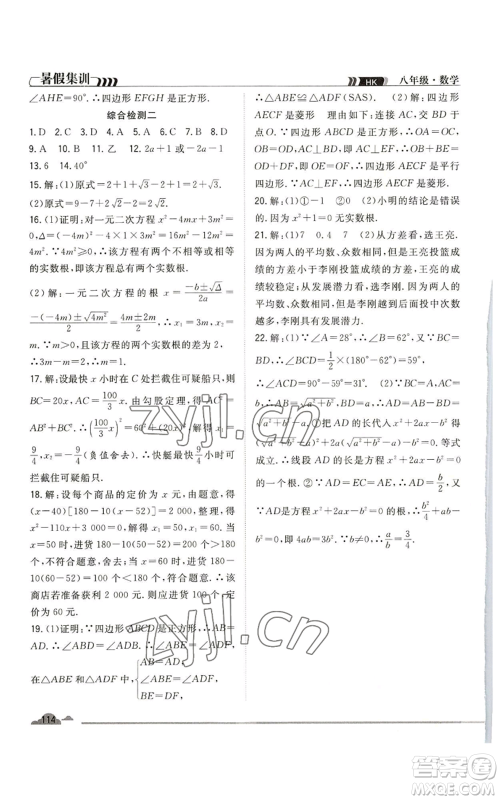 暑假集训
HK
八年级·数学
∠AHE=90°.∴四边形 EFGH 是正方形.
综合检测二
1. D 2. D 3. C 4. D 5. D 6. A 7. B 8. D
9. D 10. B 11. 乙 12. 2a+1 或-2a-1
13. 6 14. 40°
15. 解:(1)原式=2+1+√3=3+√3.
(2)原式=9-7+2√2-2=2√2.
16. (1)证明:对一元二次方程 x²-4mx+3m²=
0,Δ=(-4m)²-4×1×3m²=16m²-12m²=
4m².∵4m²≥0,∴该方程有两个不相等或相等
的实数根,即该方程总有两个实数根.
(2)解:一元二次方程的根 x=(-b±√Δ)/2a=
(-(-4m)±√4m²)/2=(4m±2m)/2,∴x₁=3m,x₂=
m.∵m>0且该方程的两个实数根的差为 2,
∴3m-m=2.∴m=1.
17. 解:设最快 x 小时在 C 处拦截住可疑船只,则
BC=20x,AC=100/3x.由勾股定理,得 AC²=
AB²+BC²,即(100/3x)²=60²+(20x)².∴x₁=
9/4,x₂=-9/4(负值舍去).∴快艇最快 9/4 小时可
拦截住可疑船只.
18. 解:设每个商品的定价为 x 元,由题意,得
(x-40)[180-10(x-52)]=2 000,整理,得
x²-110x+3 000=0,解得 x₁=50,x₂=60.当
x=50 时,进货 180-10(50-52)=200(个)>
180个,不符合题意,舍去;当 x=60 时,进货
180-10(60-52)=100(个)<180个,符合题
意.∴当 x=60 时,符合题意.∴该
商店若准备获利 2 000元,则应进货 100个,定
价为 60元.
19. (1)证明:∵四边形 ABCD 是正方形,∴AB=
AD.∴∠ABD=∠ADB.∴∠ABE=∠ADF.
在△ABE 和△ADF 中,{AB=AD,
∠ABE=∠ADF,
BE=DF,
∴△ABE≌△ADF(SAS).(2)解:四边形
AECF 是菱形 理由:如图,连接 AC,交 BD 于
点 O.∵四边形 ABCD 是正方形,∴OA=OC,
OB=OD,AC⊥BD.∵BE=DF,∴OB+BE=
OD+DF,即 OE=OF.∴四边形 AECF 是平行
四边形.∵AC⊥EF,∴四边形 AECF 是菱形.
20. 解:(1)①-1 ②0 (2)小明的结论是错误
的.因为 x²+1=0 无实数根.
21. 解:(1)7 0.4 7 (2)从方差看,选王亮.
因为两人的平均数、众数相同,王亮投篮成
绩的方差小于李刚投篮成绩的方差,王亮的成
绩更稳定.(3)从发展潜力看,选李刚.因为两
人的平均数、众数相同,而李刚后面投中次数
越多,李刚具有发展潜力.
22. 解:(1)∵∠A=28°,∴∠B=62°.∵BD=
BC,∴∠BCD=1/2×(180°-62°)=59°.
∴∠ACD=90°-59°=31°.(2)由勾股定理,得
AB=√(a²+b²).∵BD=a,∴AD=√(a²+b²)-
a.①把 AD 的长代入方程 x²+2ax-b²=0,得
(√(a²+b²)-a)²+2a(√(a²+b²)-a)-b²=0,等式
成立.∴线段 AD 的长是方程 x²+2ax-b²=0
的一个根.②∵AD=AE,∴AE=EC=b/2.
又∵AD是方程 x²+2ax-b²=0的根,∴b²/4+
ab-b²=0,即 4ab=3b².∵b≠0,∴a/b=3/4.
114
zyjl.cn
zyjl.cn